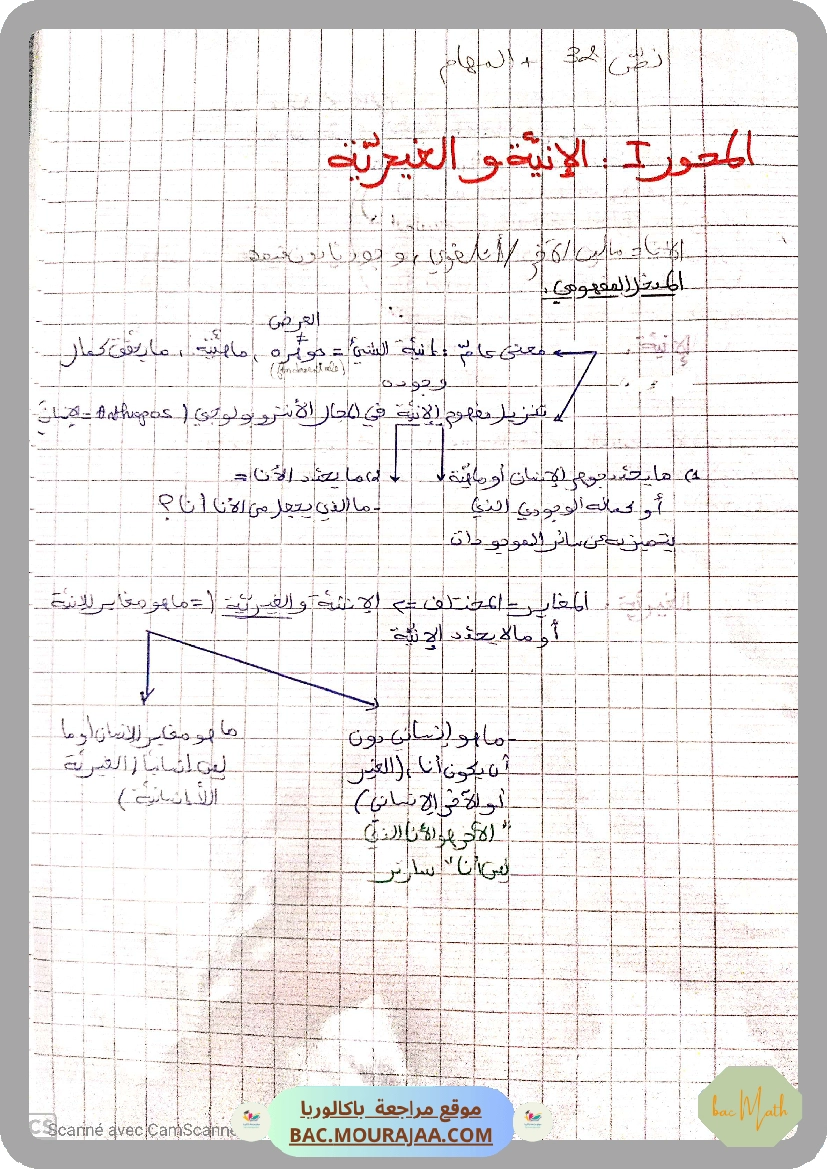 نصّ 32 + المهام
المحور I : الإنيّة و الغيريّة
الأنا = ما ليس الآخر / أنا لغوي، وجودنا بدون
المدخل المفهومي :
العرض
≠
الإنيّة : معنى عامّ : إنيّة الشيء = جوهره، ماهيّته، ما يحقّق كمال
(fondamentale)
وجوده
تنزيل مفهوم الإنيّة في المجال الأنتروبولوجي (Anthropos = الإنسان
1) ما يحدّد جوهر الإنسان أو ماهيّته
أو كماله الوجودي الذي
يتميز به عن سائر الموجودات
2) ما يحدّد الأنا =
- ما الذي يجعل من الأنا أنا ؟
الغيرية : المغاير = المختلف => الإنيّة و الغيريّة (= ما هو مغاير للإنيّة
أو ما لا يحدّد الإنيّة
- ما هو إنساني دون
أن يكون أنا، (الغير
أو الآخر الإنساني)
"الآخر هو الأنا الذي
ليس أنا" سارتر
ما هو مغاير للإنسان أو ما
ليس إنسانيا (الغيريّة
اللاّإنسانيّة)
CS Scanné avec CamScanne
موقع مراجعة باكالوريا
BAC.MOURAJAA.COM
bac Math